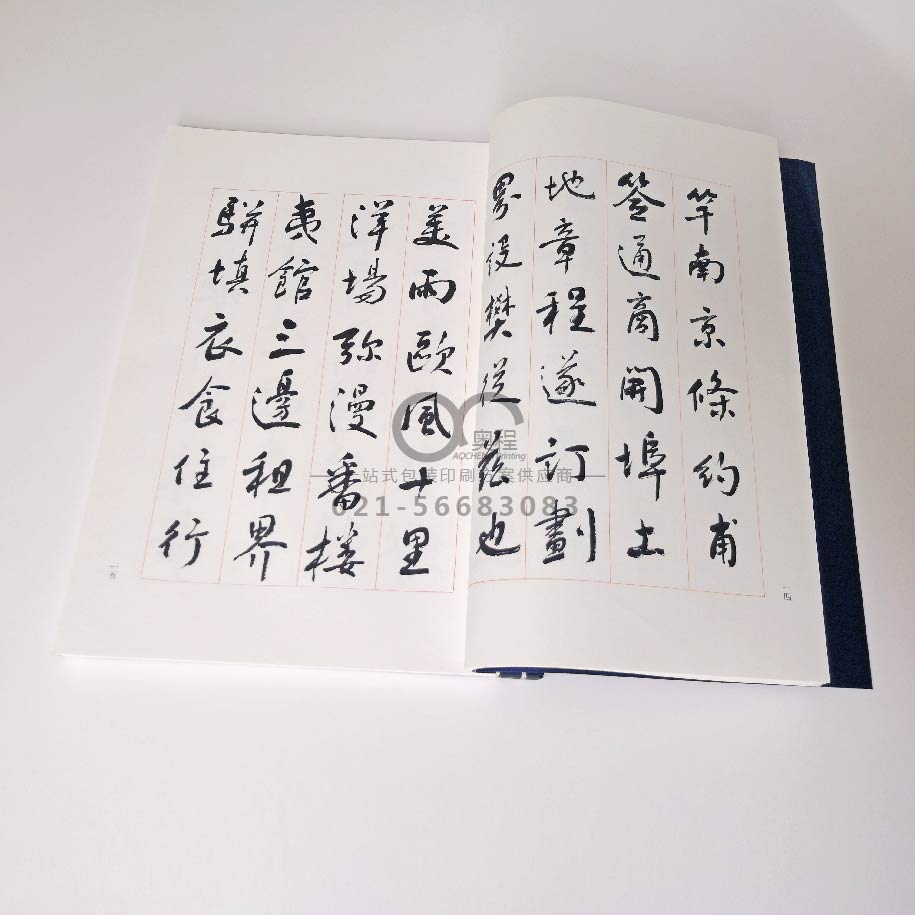 竿南京條約甫
签通商開埠土
地章程遂訂劃
役樊從兹也
一四
美雨歐風十里
洋場弥漫番楼
夷館三邊租界
駢填衣食住行
一五
奥程
AOCHENG Printing
一站式包装印刷方案供应商
021-56683083